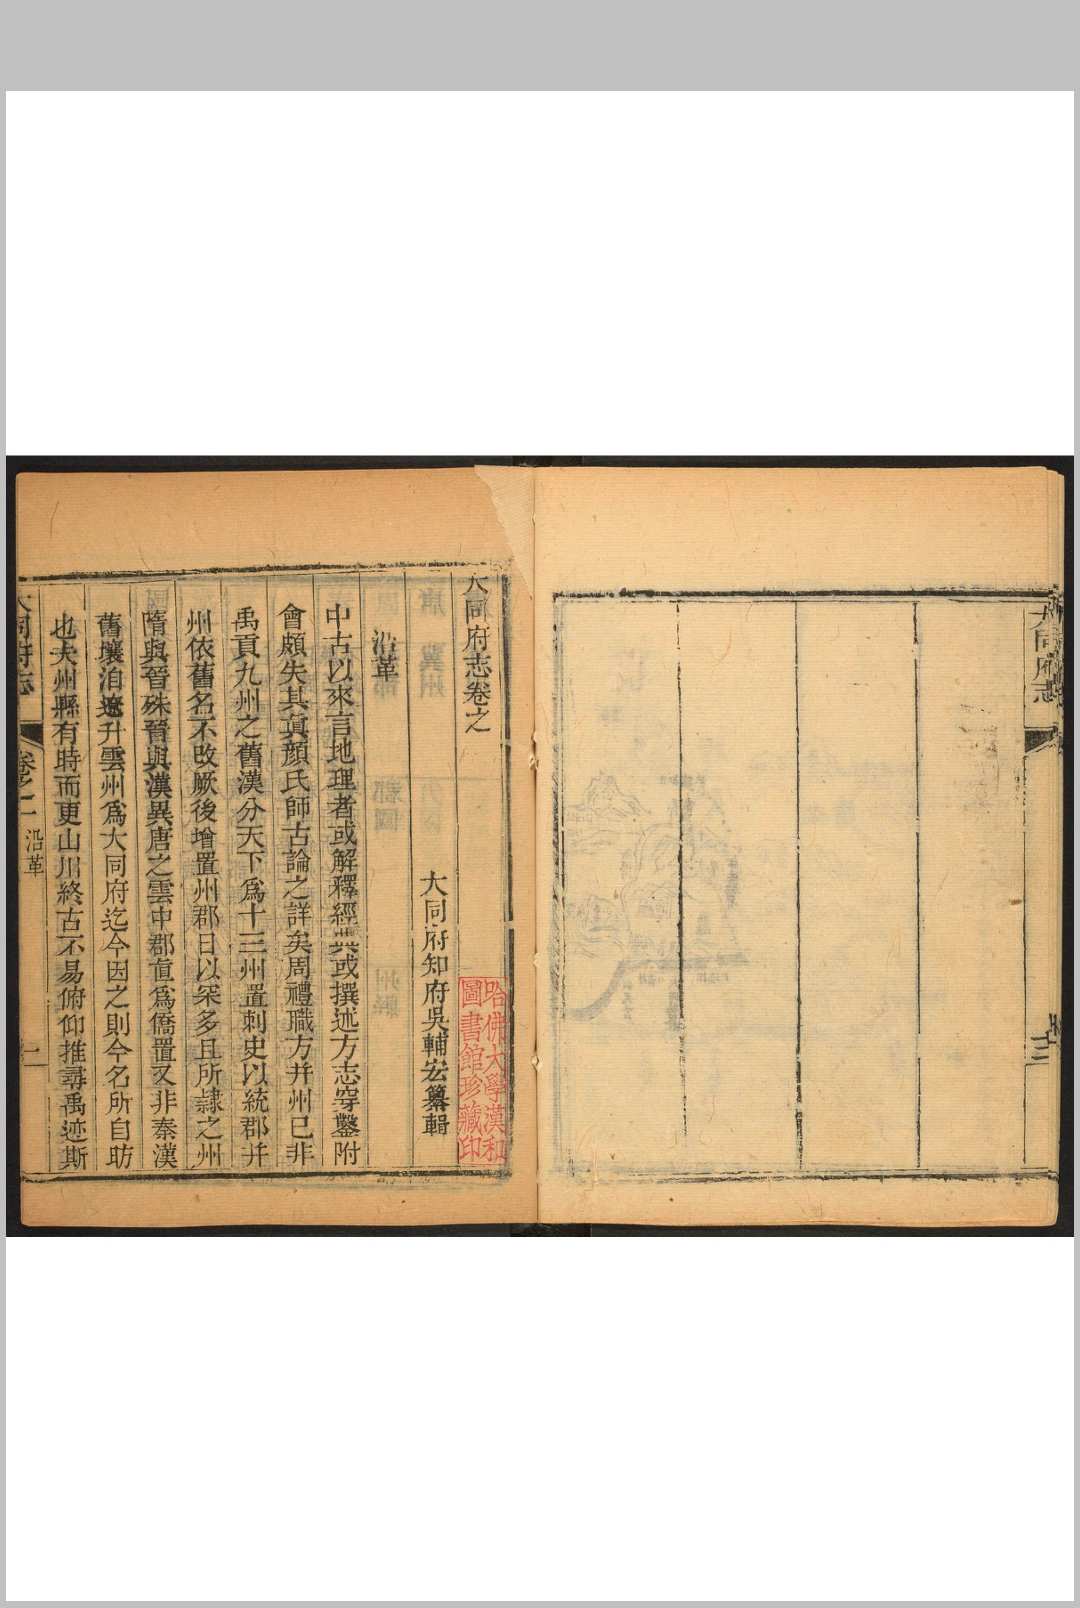 大同府志
大同府志卷之
大同府知府吳輔宏纂輯
沿革
中古以來言地理者或解釋經典或撰述方志穿鑿附
會頗失其眞顏氏師古論之詳矣周禮職方并州已非
禹貢九州之舊漢分天下爲十三州置刺史以統郡并
州依舊名不改厥後增置州郡日以寀多且所隷之州
隋與晉殊晉與漢異唐之雲中郡直爲僑置又非秦漢
舊壤洎遼升雲州爲大同府迄今因之則今名所自昉
也夫州縣有時而更山川終古不易俯仰推尋禹迹斯
大同府志
卷之二
沿革
一
哈佛大學漢和
圖書館珍藏印